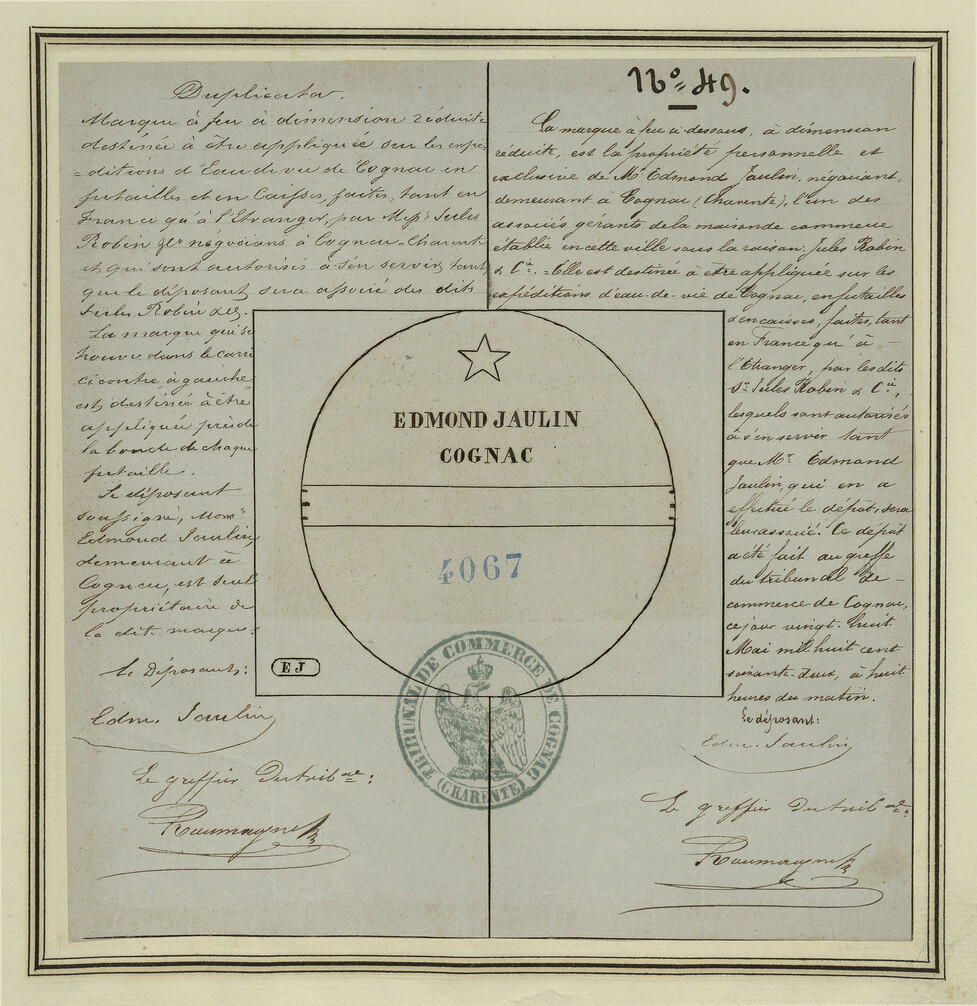 Duplicata.
Marque à feu à dimension réduite
destinée à être appliquée sur les expé
=ditions d'Eau de vie de Cognac en
futailles et en Caisses, faites, tant en
France qu'à l'Etranger, par Mess.rs Jules
Robin & Cie négocians à Cognac-Charente
et qui sont autorisés à s'en servir, tant
que le déposant sera associé des dits
Jules Robin & Cie.
La marque qui se
trouve dans le carré
ci contre, à gauche
est destinée à être
appliquée près de
la bonde de chaque
futaille.
Le déposant
soussigné, Mons.r
Edmond Jaulin,
demeurant à
Cognac, est seul
propriétaire de
la dit marque.
Le Déposant:
Edm. Jaulin
Le greffier Du trib.al:
Roumagne
No=49.
La marque à feu ci-dessous, à dimension
réduite, est la propriété personnelle et
exclusive de Mr. Edmond Jaulin, négociant,
demeurant à Cognac (Charente), l'un des
associés gérants de la maison de commerce
établie en cette ville sous la raison: Jules Robin
& Cie. = Elle est destinée à être appliquée sur les
expéditions d'eau-de-vie de Cognac, en futailles
& en caisses, faites, tant
en France qu'à -
l'Etranger, par les dits
Srs. Jules Robin & Cie,
lesquels sont autorisés
à s'en servir tant
que Mr. Edmond
Jaulin, qui en a
effectué le dépôt, sera
leur associé. Ce dépôt
a été fait au greffe
du tribunal de -
commerce de Cognac,
ce jour vingt-huit
Mai mil huit cent
soixante-deux, à huit
heures du matin.
Le déposant:
Edm. Jaulin
Le greffier Du trib.al:
Roumagne
EDMOND JAULIN
COGNAC
4067
EJ
TRIBUNAL DE COMMERCE DE COGNAC
(CHARENTE)